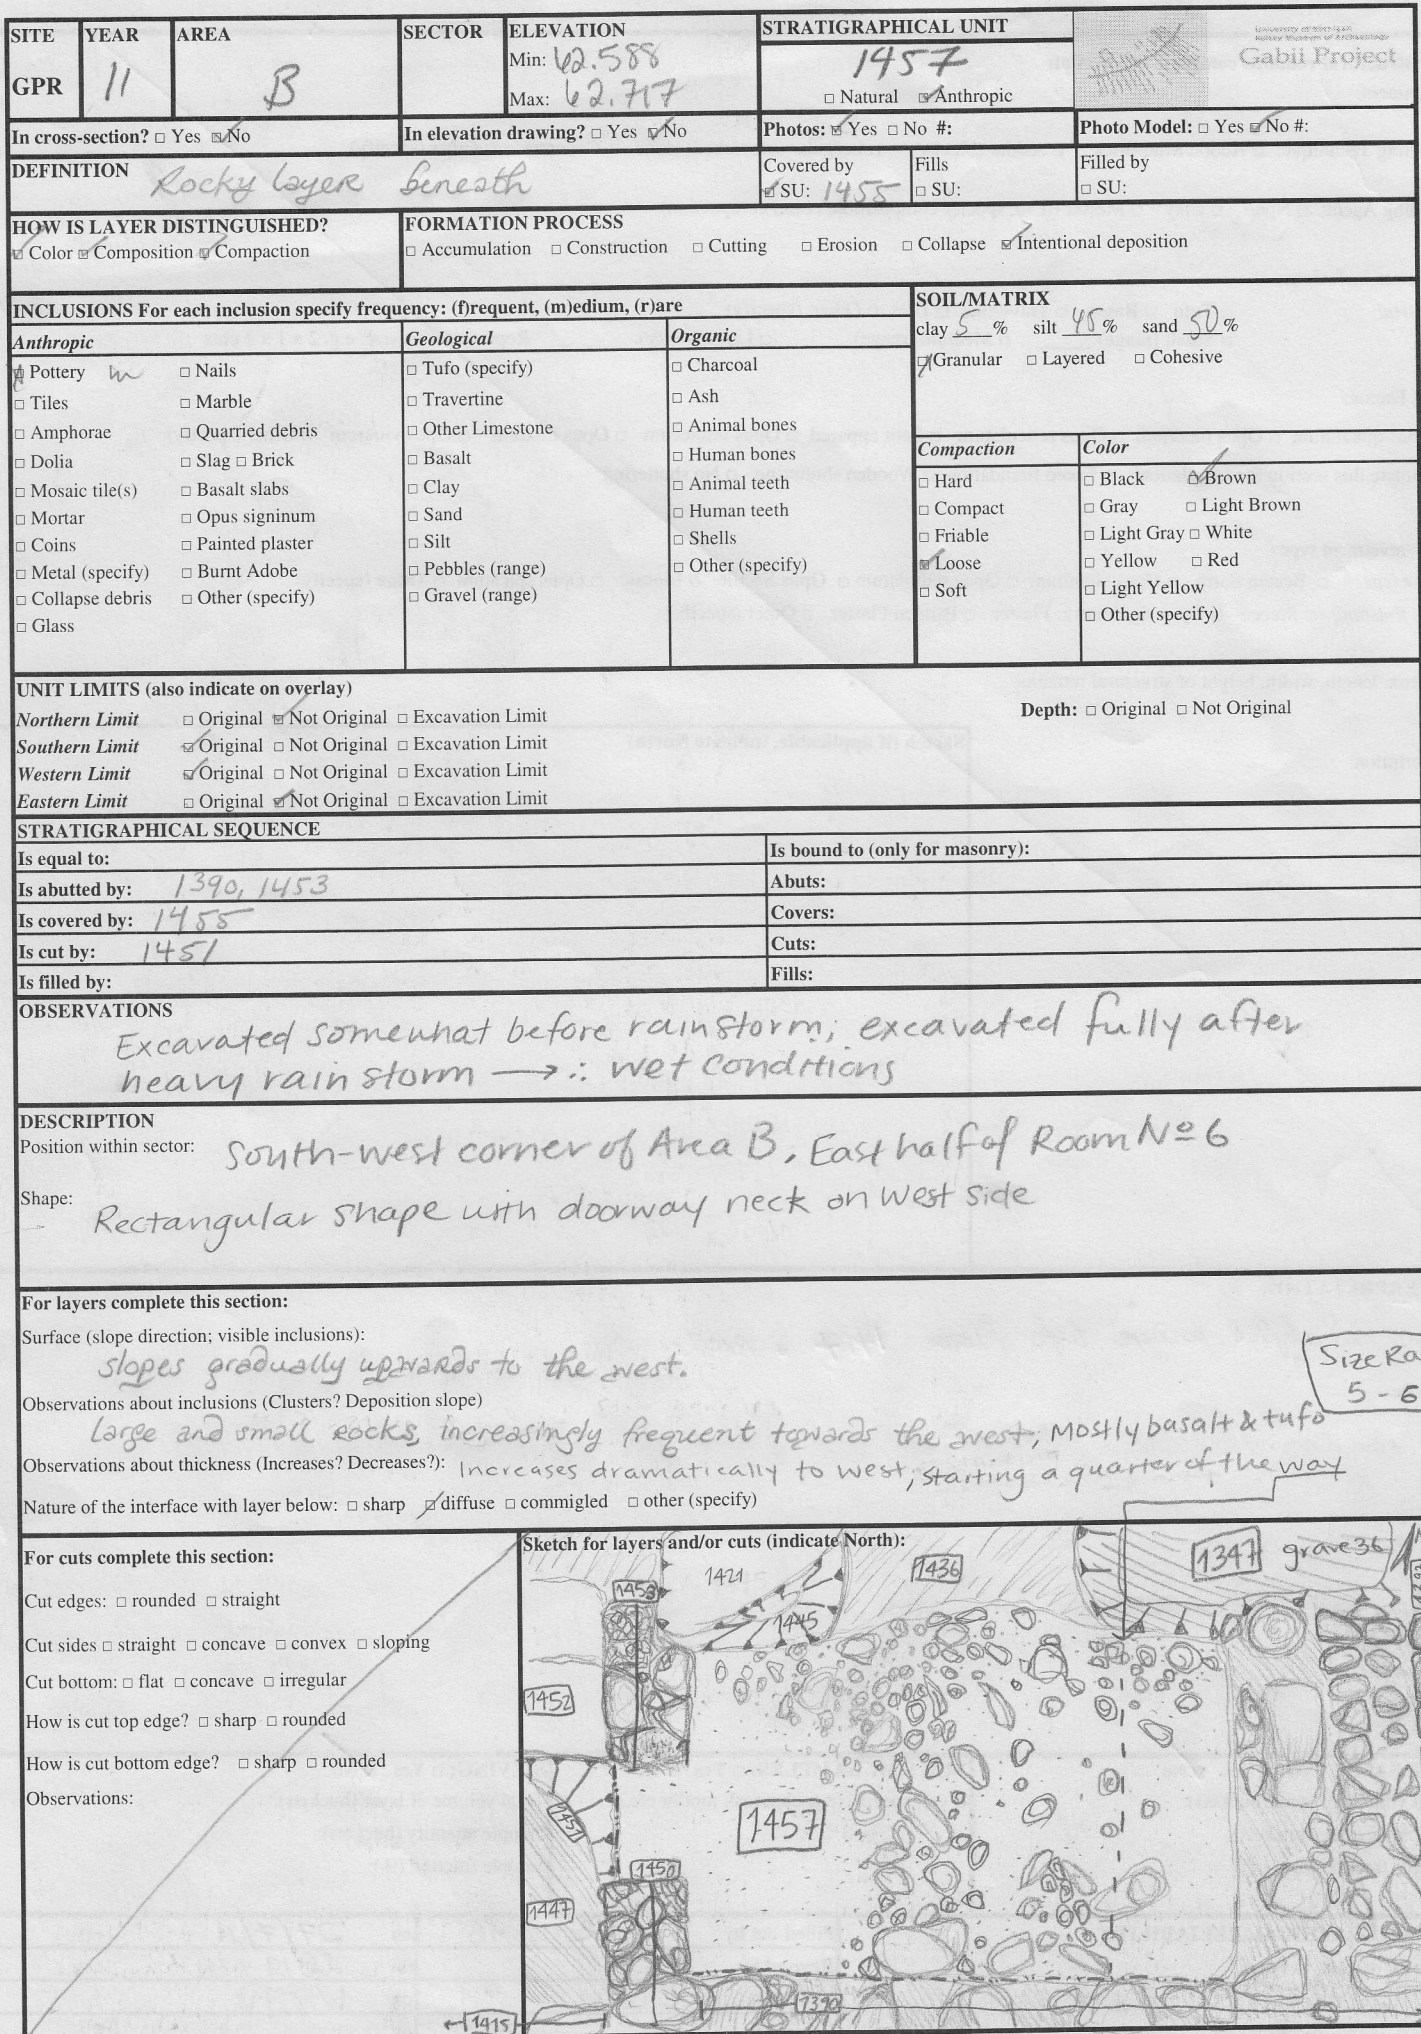 SITE YEAR AREA SECTOR ELEVATION STRATIGRAPHICAL UNIT
GPR 11 B Min: 62.588 1457
Max: 62.717 □ Natural ☑ Anthropic
University of Michigan
Kelsey Museum of Archaeology
Gabii Project
In cross-section? □ Yes ☑ No In elevation drawing? □ Yes ☑ No Photos: ☑ Yes □ No #: Photo Model: □ Yes ☑ No #:
DEFINITION Rocky layer beneath
Covered by ☑ SU: 1455
Fills □ SU:
Filled by □ SU:
HOW IS LAYER DISTINGUISHED?
☑ Color ☑ Composition ☑ Compaction
FORMATION PROCESS
□ Accumulation □ Construction □ Cutting □ Erosion □ Collapse ☑ Intentional deposition
INCLUSIONS For each inclusion specify frequency: (f)requent, (m)edium, (r)are
Anthropic
☑ Pottery m □ Nails
□ Tiles □ Marble
□ Amphorae □ Quarried debris
□ Dolia □ Slag □ Brick
□ Mosaic tile(s) □ Basalt slabs
□ Mortar □ Opus signinum
□ Coins □ Painted plaster
□ Metal (specify) □ Burnt Adobe
□ Collapse debris □ Other (specify)
□ Glass
Geological
□ Tufo (specify)
□ Travertine
□ Other Limestone
□ Basalt
□ Clay
□ Sand
□ Silt
□ Pebbles (range)
□ Gravel (range)
Organic
□ Charcoal
□ Ash
□ Animal bones
□ Human bones
□ Animal teeth
□ Human teeth
□ Shells
□ Other (specify)
SOIL/MATRIX
clay 5 % silt 45 % sand 50 %
☑ Granular □ Layered □ Cohesive
Compaction
□ Hard
□ Compact
□ Friable
☑ Loose
□ Soft
Color
□ Black ☑ Brown
□ Gray □ Light Brown
□ Light Gray □ White
□ Yellow □ Red
□ Light Yellow
□ Other (specify)
UNIT LIMITS (also indicate on overlay)
Northern Limit □ Original ☑ Not Original □ Excavation Limit Depth: □ Original □ Not Original
Southern Limit ☑ Original □ Not Original □ Excavation Limit
Western Limit ☑ Original □ Not Original □ Excavation Limit
Eastern Limit □ Original ☑ Not Original □ Excavation Limit
STRATIGRAPHICAL SEQUENCE
Is equal to: Is bound to (only for masonry):
Is abutted by: 1390, 1453 Abuts:
Is covered by: 1455 Covers:
Is cut by: 1451 Cuts:
Is filled by: Fills:
OBSERVATIONS
Excavated somewhat before rainstorm; excavated fully after
heavy rain storm → ∴ wet conditions
DESCRIPTION
Position within sector: South-west corner of Area B, East half of Room Nº 6
Shape: Rectangular shape with doorway neck on west side
For layers complete this section:
Surface (slope direction; visible inclusions):
slopes gradually upwards to the west.
Size Ra
5 - 6
Observations about inclusions (Clusters? Deposition slope)
large and small rocks, increasingly frequent towards the west; Mostly basalt & tufo
Observations about thickness (Increases? Decreases?): Increases dramatically to west, starting a quarter of the way
Nature of the interface with layer below: □ sharp ☑ diffuse □ commigled □ other (specify)
For cuts complete this section:
Cut edges: □ rounded □ straight
Cut sides □ straight □ concave □ convex □ sloping
Cut bottom: □ flat □ concave □ irregular
How is cut top edge? □ sharp □ rounded
How is cut bottom edge? □ sharp □ rounded
Observations:
Sketch for layers and/or cuts (indicate North):
1453 1421 1436 1347 grave 36
1445
1452
1451
1457
1450
1447
1390
1415